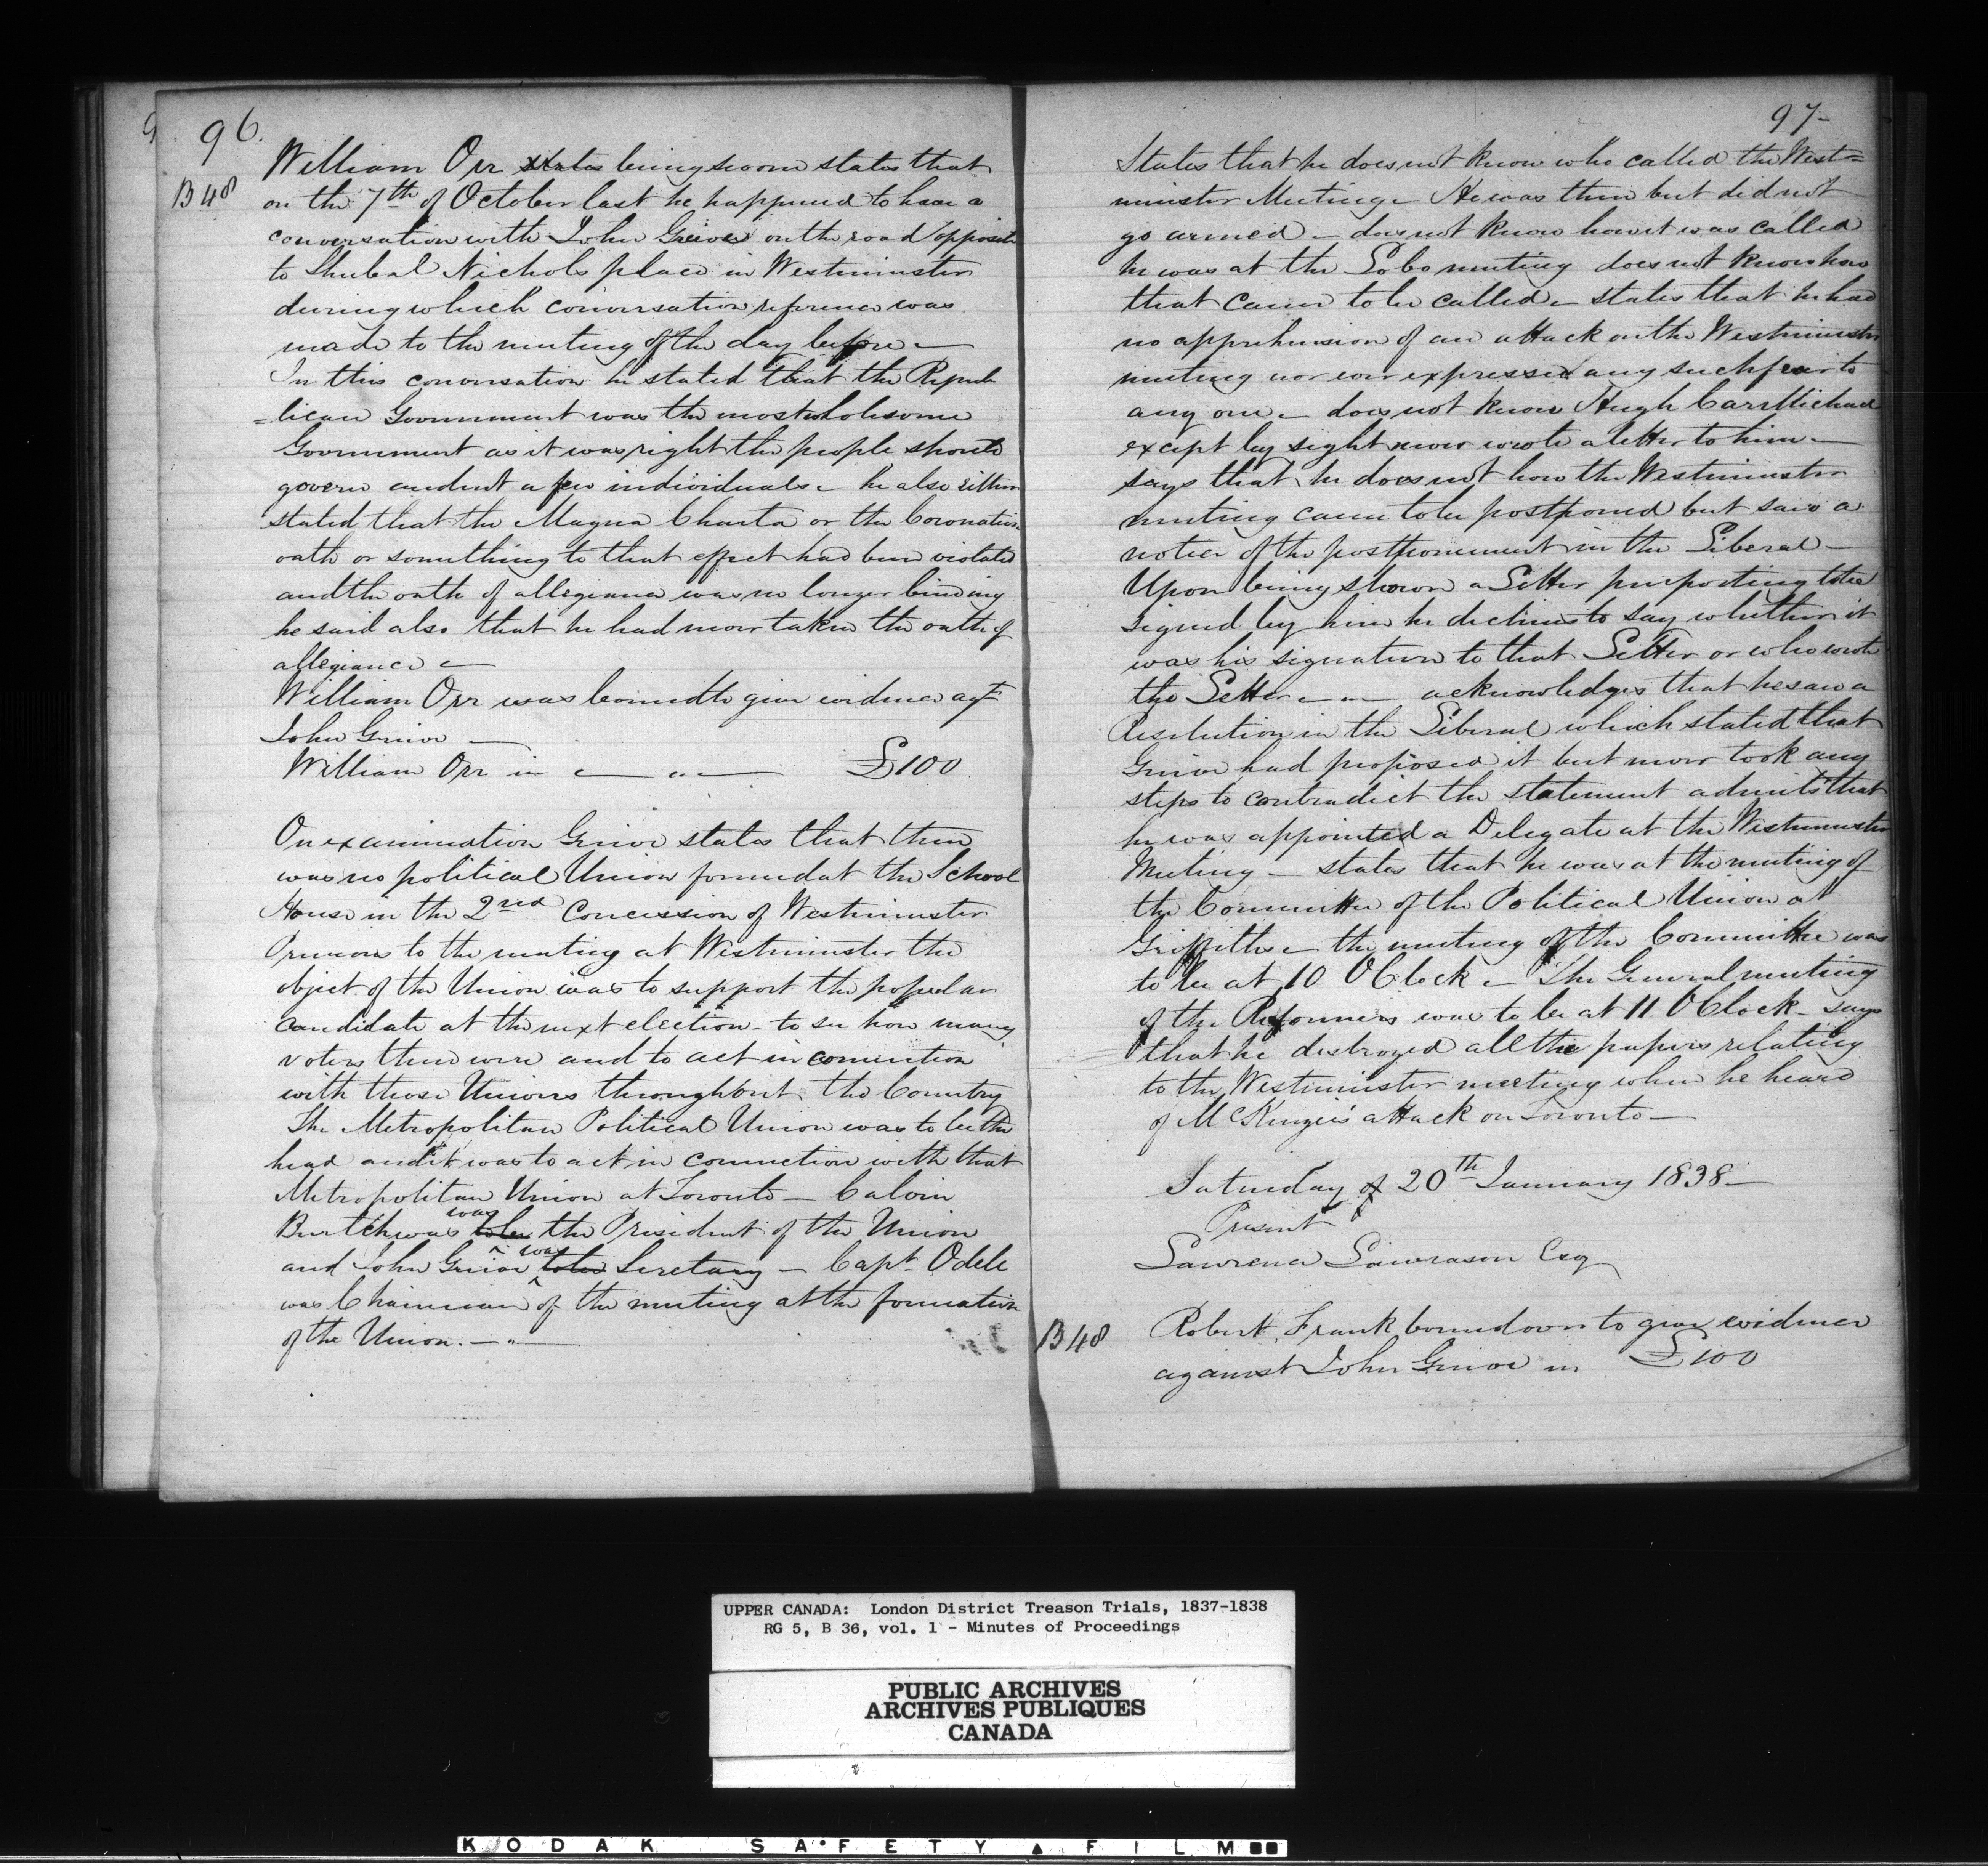 96.
William Orr states being sworn states that
B 48
on the 7th of October last he happened to have a
conversation with John Grieve on the road opposite
to Shubal Nichols place in Westminster
during which conversation reference was
made to the meeting of the day before —
In this conversation he stated that the Repub
=lican Government was the most wholesome
Government as it was right the people should
govern and not a few individuals – he also either
stated that the Magna Charta or the Coronation
oath or something to that effect had been violated
and the oath of allegiance was no longer binding
he said also that he had never taken the oath of
allegiance —
William Orr was bound to give evidence agt
John Grieve —
William Orr in — " — £100
On examination Grieve states that there
was no political Union formed at the School
House in the 2nd Concession of Westminster
Previous to the meeting at Westminster the
object of the Union was to support the popular
candidate at the next election – to see how many
voters there were and to act in connection
with those Unions throughout the Country
The Metropolitan Political Union was to be the
head and it was to act in connection with that
Metropolitan Union at Toronto — Calvin
Burtch was to be was the President of the Union
and John Grieve to be was Secretary — Capt Odele
was Chairman of the meeting at the formation
of the Union. — " —
97–
States that he does not know who called the West=
minster Meeting – He was there but did not
go armed – does not know how it was called
he was at the Lobo meeting does not know how
that came to be called – states that he had
no apprehension of an attack on the Westminster
meeting nor ever expressed any such fear to
any one – does not know Hugh CarMichael
except by sight never wrote a letter to him —
says that he does not how the Westminster
meeting came to be postponed but saw a
notice of the postponement in the Liberal —
Upon being shown a Letter purporting to be
signed by him he declines to say whether it
was his signature to that Letter or who wrote
the Letter – " – acknowledges that he saw a
Resolution in the Liberal which stated that
Grieve had proposed it but never took any
steps to contradict the statement admits that
he was appointed a Delegate at the Westminster
Meeting – states that he was at the meeting of
the Committee of the Political Union at
Griffiths – the meeting of the Committee was
to be at 10 OClock – The General meeting
of the Reformers was to be at 11 OClock – says
that he destroyed all the papers relating
to the Westminster meeting when he heard
of McKenzie's attack on Toronto —
Saturday 20th January 1838 —
Present
Lawrence Lawrason Esq
B 48
Robert Frank bound over to give evidence
against John Grieve in £100
UPPER CANADA: London District Treason Trials, 1837-1838
RG 5, B 36, vol. 1 - Minutes of Proceedings
PUBLIC ARCHIVES
ARCHIVES PUBLIQUES
CANADA
KODAK SAFETY FILM